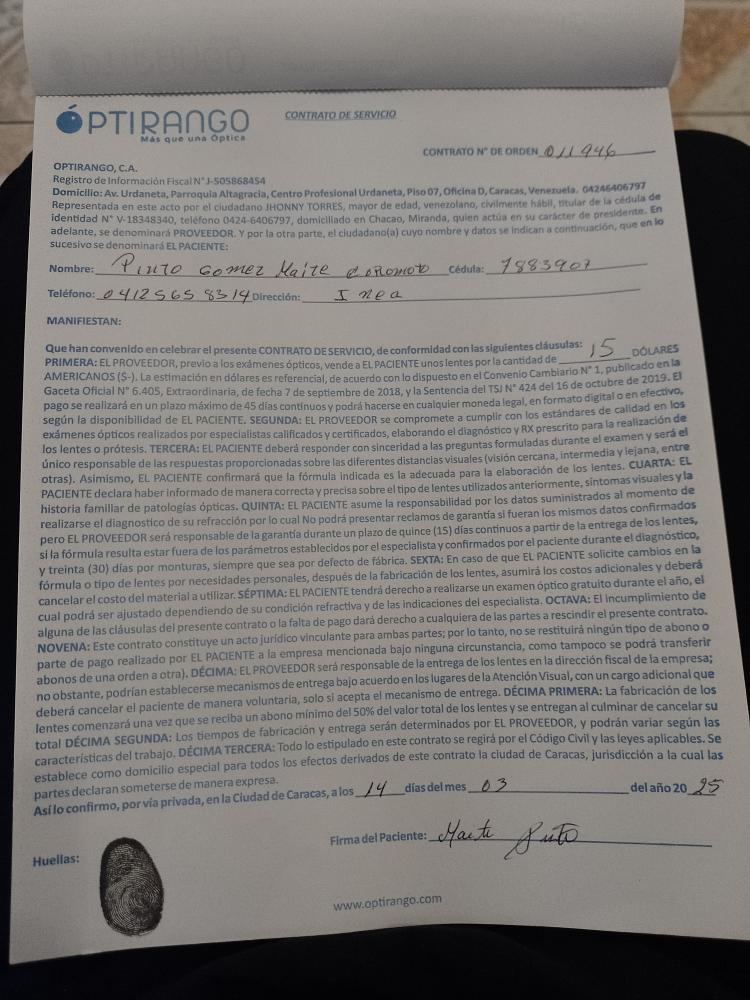 ÓPTIRANGO
Más que una Óptica
CONTRATO DE SERVICIO
CONTRATO N° DE ORDEN 011946
OPTIRANGO, C.A.
Registro de Información Fiscal N° J-505868454
Domicilio: Av. Urdaneta, Parroquia Altagracia, Centro Profesional Urdaneta, Piso 07, Oficina D, Caracas, Venezuela. 04246406797
Representada en este acto por el ciudadano JHONNY TORRES, mayor de edad, venezolano, civilmente hábil, titular de la cédula de
identidad N° V-18348340, teléfono 0424-6406797, domiciliado en Chacao, Miranda, quien actúa en su carácter de presidente. En
adelante, se denominará PROVEEDOR. Y por la otra parte, el ciudadano(a) cuyo nombre y datos se indican a continuación, que en lo
sucesivo se denominará EL PACIENTE:
Nombre: Pinto Gomez Maite Coromoto Cédula: 7883907
Teléfono: 0412565 8314 Dirección: Inea
MANIFIESTAN:
Que han convenido en celebrar el presente CONTRATO DE SERVICIO, de conformidad con las siguientes cláusulas:
PRIMERA: EL PROVEEDOR, previo a los exámenes ópticos, vende a EL PACIENTE unos lentes por la cantidad de 15 DÓLARES
AMERICANOS ($-). La estimación en dólares es referencial, de acuerdo con lo dispuesto en el Convenio Cambiario N° 1, publicado en la
Gaceta Oficial N° 6.405, Extraordinaria, de fecha 7 de septiembre de 2018, y la Sentencia del TSJ N° 424 del 16 de octubre de 2019. El
pago se realizará en un plazo máximo de 45 días continuos y podrá hacerse en cualquier moneda legal, en formato digital o en efectivo,
según la disponibilidad de EL PACIENTE. SEGUNDA: EL PROVEEDOR se compromete a cumplir con los estándares de calidad en los
exámenes ópticos realizados por especialistas calificados y certificados, elaborando el diagnóstico y RX prescrito para la realización de
los lentes o prótesis. TERCERA: EL PACIENTE deberá responder con sinceridad a las preguntas formuladas durante el examen y será el
único responsable de las respuestas proporcionadas sobre las diferentes distancias visuales (visión cercana, intermedia y lejana, entre
otras). Asimismo, EL PACIENTE confirmará que la fórmula indicada es la adecuada para la elaboración de los lentes. CUARTA: EL
PACIENTE declara haber informado de manera correcta y precisa sobre el tipo de lentes utilizados anteriormente, síntomas visuales y la
historia familiar de patologías ópticas. QUINTA: EL PACIENTE asume la responsabilidad por los datos suministrados al momento de
realizarse el diagnostico de su refracción por lo cual No podrá presentar reclamos de garantía si fueran los mismos datos confirmados
pero EL PROVEEDOR será responsable de la garantía durante un plazo de quince (15) días continuos a partir de la entrega de los lentes,
si la fórmula resulta estar fuera de los parámetros establecidos por el especialista y confirmados por el paciente durante el diagnóstico,
y treinta (30) días por monturas, siempre que sea por defecto de fábrica. SEXTA: En caso de que EL PACIENTE solicite cambios en la
fórmula o tipo de lentes por necesidades personales, después de la fabricación de los lentes, asumirá los costos adicionales y deberá
cancelar el costo del material a utilizar. SÉPTIMA: EL PACIENTE tendrá derecho a realizarse un examen óptico gratuito durante el año, el
cual podrá ser ajustado dependiendo de su condición refractiva y de las indicaciones del especialista. OCTAVA: El incumplimiento de
alguna de las cláusulas del presente contrato o la falta de pago dará derecho a cualquiera de las partes a rescindir el presente contrato.
NOVENA: Este contrato constituye un acto jurídico vinculante para ambas partes; por lo tanto, no se restituirá ningún tipo de abono o
parte de pago realizado por EL PACIENTE a la empresa mencionada bajo ninguna circunstancia, como tampoco se podrá transferir
abonos de una orden a otra). DÉCIMA: EL PROVEEDOR será responsable de la entrega de los lentes en la dirección fiscal de la empresa;
no obstante, podrían establecerse mecanismos de entrega bajo acuerdo en los lugares de la Atención Visual, con un cargo adicional que
deberá cancelar el paciente de manera voluntaria, solo si acepta el mecanismo de entrega. DÉCIMA PRIMERA: La fabricación de los
lentes comenzará una vez que se reciba un abono mínimo del 50% del valor total de los lentes y se entregan al culminar de cancelar su
total DÉCIMA SEGUNDA: Los tiempos de fabricación y entrega serán determinados por EL PROVEEDOR, y podrán variar según las
características del trabajo. DÉCIMA TERCERA: Todo lo estipulado en este contrato se regirá por el Código Civil y las leyes aplicables. Se
establece como domicilio especial para todos los efectos derivados de este contrato la ciudad de Caracas, jurisdicción a la cual las
partes declaran someterse de manera expresa.
Así lo confirmo, por vía privada, en la Ciudad de Caracas, a los 14 días del mes 03 del año 20 25
Firma del Paciente: Maite Pinto
Huellas:
www.optirango.com